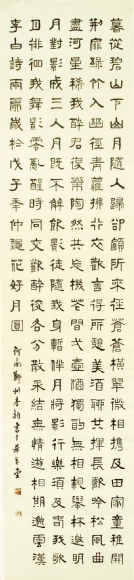 暮從碧山下山月隨人歸卻顧所來徑蒼蒼橫翠微相攜及田家童稚開
荊扉綠竹入幽徑青蘿拂行衣歡言得所憩美酒聊共揮長歌吟松風曲
盡河星稀我醉君復樂陶然共忘機花間一壺酒獨酌無相親舉杯邀明
月對影成三人月既不解飲影徒隨我身暫伴月將影行樂須及春我歌
月徘徊我舞影零亂醒時同交歡醉後各分散永結無情遊相期邈雲漢
李白詩兩篇歲於戊子年仲穐花好月圓 河南鄭州李